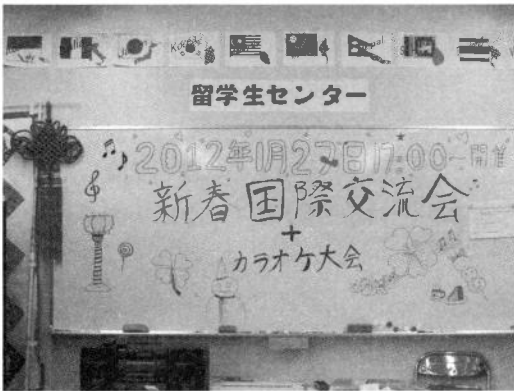 Korea
留学生センター
2012年1月27日17:00〜開催
新春国際交流会
+
カラオケ大会